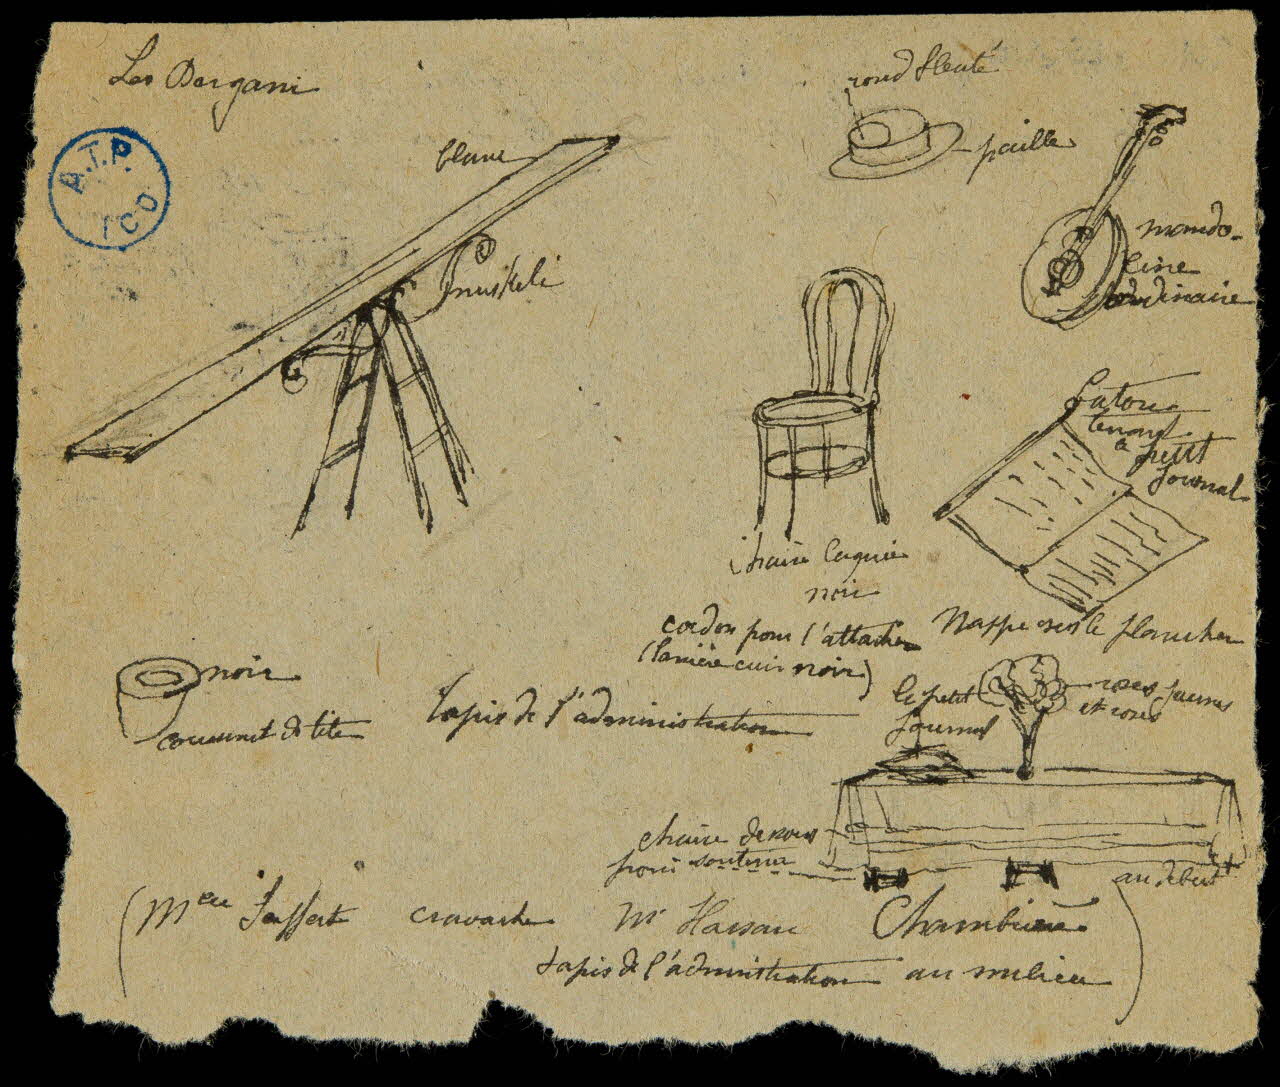 Les Dergani
A.T.P.
ICO
blanc
nuskeli
rond fleuté
paille
mando-
line
ordinaire
baton
tenant
petit
journal
chaise laquée
noir
cordon pour l'attacher
(laniere cuir noir)
Nappe sur le plancher
noir
couronnet de tête
Tapis de l'administration
le petit
journal
roses jaunes
et roses
chaise dessous
pour soutenir
au début
(Melle Jeffert cravache Mr Hassan Chambriere
tapis de l'administration au milieu)